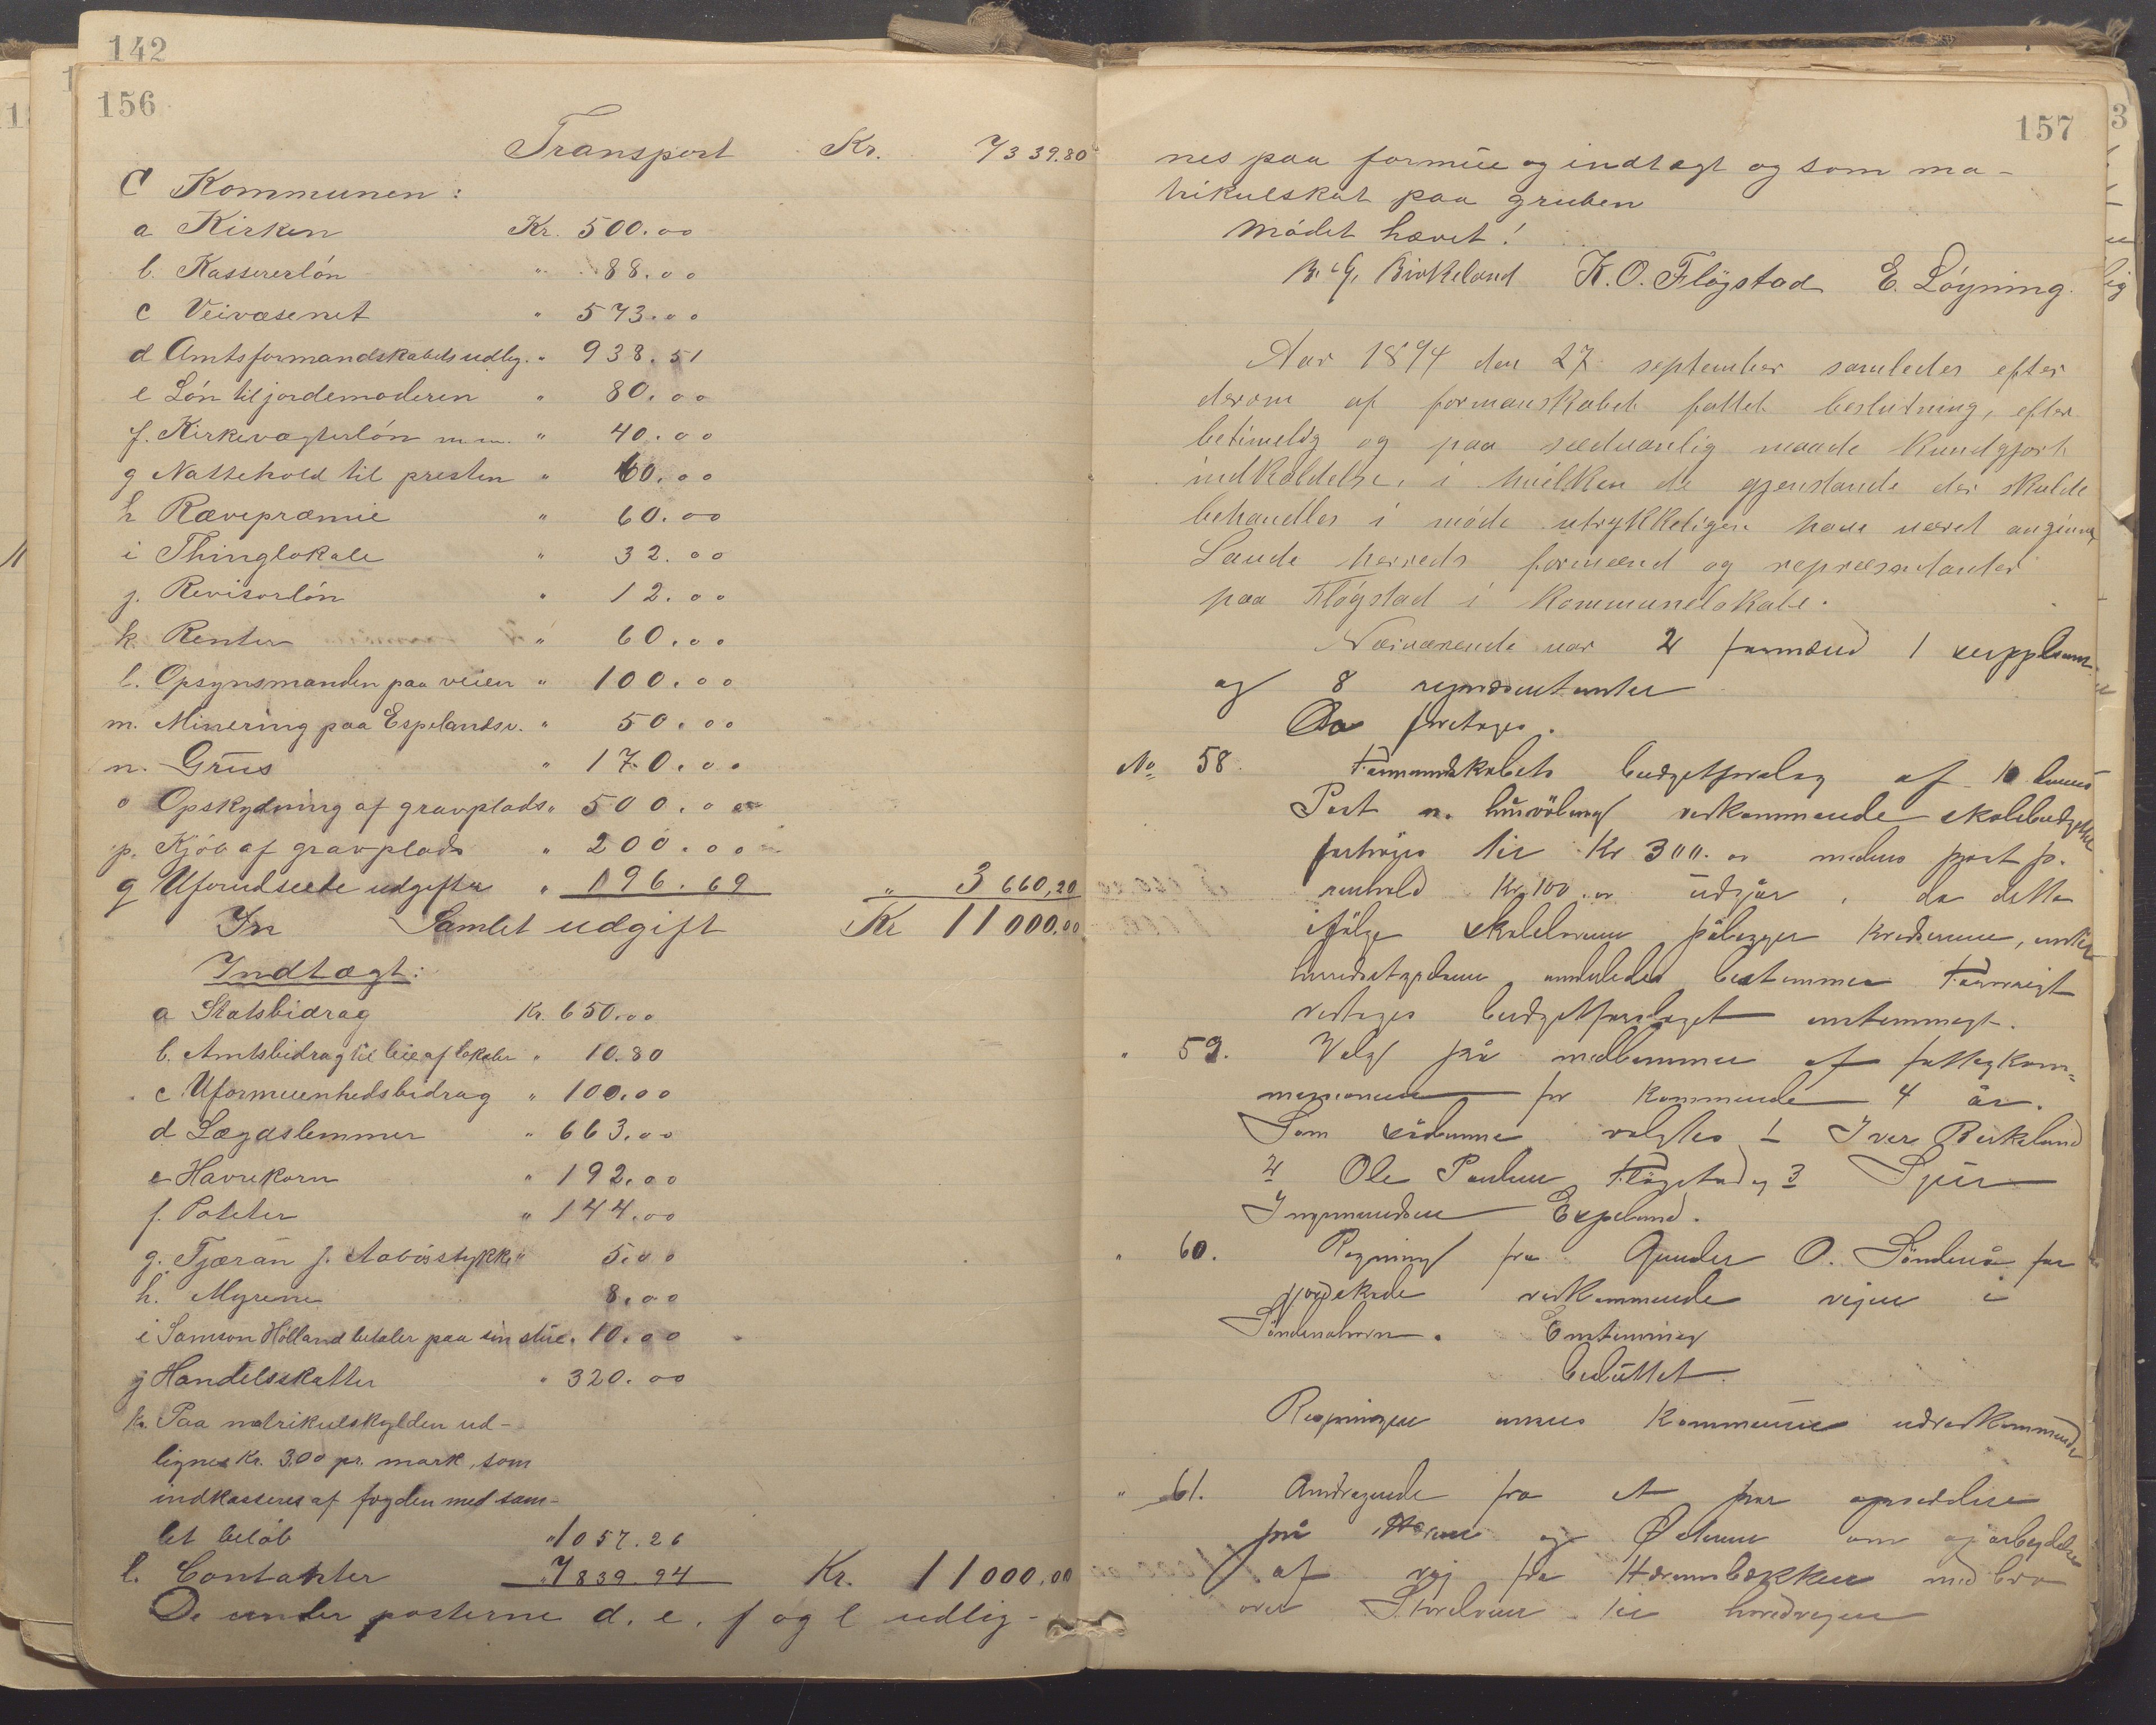 142
156
Transport Kr. 7339.80
C Kommunen:
a Kirken Kr. 500.00
b. Kassererlón " 88.00
c Veivæsenet " 573.00
d Amtsformandskabetsudlig. " 938.51
e Lón til jordemoderen " 80.00
f. Kirkevægterlón m.m. " 40.00
g Nattehold til presten " 60.00
h Rævepræmie " 60.00
i Thinglokale " 32.00
j. Revisorlón " 12.00
k. Renter " 60.00
l. Opsynsmanden paa veien " 100.00
m. Minering paa Espelandsv. " 50.00
n. Grus " 170.00
o Opskydning af gravplads " 500.00
p. Kjöb af gravplads " 200.00
q Uforudseete udgifter " 196.69 " 3660,20
Samlet udgift Kr 11000.00
Indtægt:
a Statsbidrag Kr. 650.00
b. Amtsbidrag til leie af lokaler " 10.80
c Uformuenhedsbidrag " 100.00
d Lægdslemmer " 663.00
e Havrekorn " 192.00
f. Poteter " 144.00
g. Tjæran f. Aaböstykke " 5.00
h. Myrene 8.00
i Samson Hólland betaler paa sin stue. 10.00
j Handelsskatter " 320.00
k. Paa matrikulskylden ud-
lignes Kr. 3,00 pr. mark, som
indkasseres af fogden med sam-
let belöb " 1057.26
l. Contanter " 7839.94 Kr. 11000.00
De under posterne d. e. f og l udlig-
157
nes paa formue og indtægt og som ma-
trikulskat paa gruben
Módet hævet!
B. G. Birkeland K. O. Flógstad E. Lóyning.
Aar 1894 den 27 september samledes efter
derom af formanskabet fattet beslutning, efter
betimelig og paa sædvanlig maade kundgjort
indkaldelse, i hvilken de gjenstande der skulde
behandles i móde utrykkeligen have været angivne,
Saude herreds formænd og repræsentanter
paa Flógstad i kommunelokale.
Nærværende var 2 formænd 1 suppleant
og 8 repræsentanter
Da foretoges.
No 58. Formandskabets budgetforslag af 10 dennes
Post n. husvöling vedkommende skolebudgettet
forhöges til Kr 300.00 medens post p.
renhold Kr 100.00 udgår, da dette
ifölge skoleloven pålægger kredsene, unter
herredsstyrelsen anderledes bestemmer Forövrigt
vedtoges budgetforslaget enstemmigt.
" 59. Valg på medlemmer af fattigkom=
missionen for kommende 4 år.
Som sådanne valgtes 1 Iver Birkeland
2 Ole Paulsen Flögstad og 3 Sjur
Ingemundsen Espeland.
" 60. Regning fra Gunder O. Söndenå for
jordskade vedkommende vejen i
Enstemmig
besluttet.
Regningen anses kommunen uvedkommende
" 61. Andragende fra et par opsiddere
på og Østerne om oparbejdelse
af vej fra med bro
over Storelven til hovedvejen